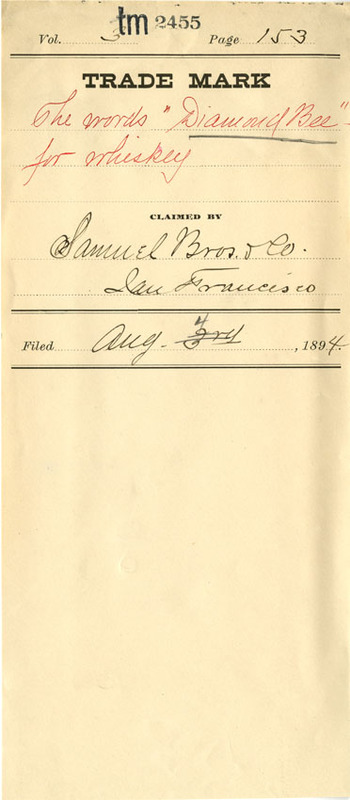 tm 2455
Vol. 3 Page 153
TRADE MARK
The words "Diamond Bee"
for whiskey
CLAIMED BY
Samuel Bros. & Co.
San Francisco
4
Filed Aug. 3rd, 1894.